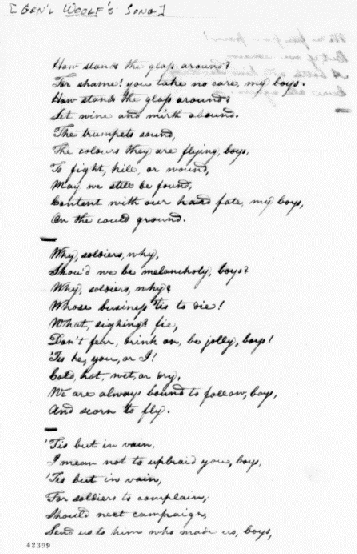 [GEN'L WOOLF'S SONG]
How stands the glass around?
For shame! you take no care, my boys.
How stands the glass around?
Let wine and mirth abound.
The trumpets sound,
The colours they are flying, boys,
To fight, kill, or wound,
May we still be found,
Content with our hard fate, my boys,
On the could ground.
Why, soldiers, why,
Shou'd we be melancholy, boys?
Why, soldiers, why?
Whose business 'tis to die!
What, sighing? fie,
Don't fear, drink on, be jolly, boys!
'Tis he, you, or I!
Cold, hot, wet, or dry,
We are always bound to follow, boys,
And scorn to fly.
'Tis but in vain,
I mean not to upbraid you, boys,
'Tis but in vain,
For soldiers to complain;
Should next campaign,
Send us to him who made us, boys,
42399